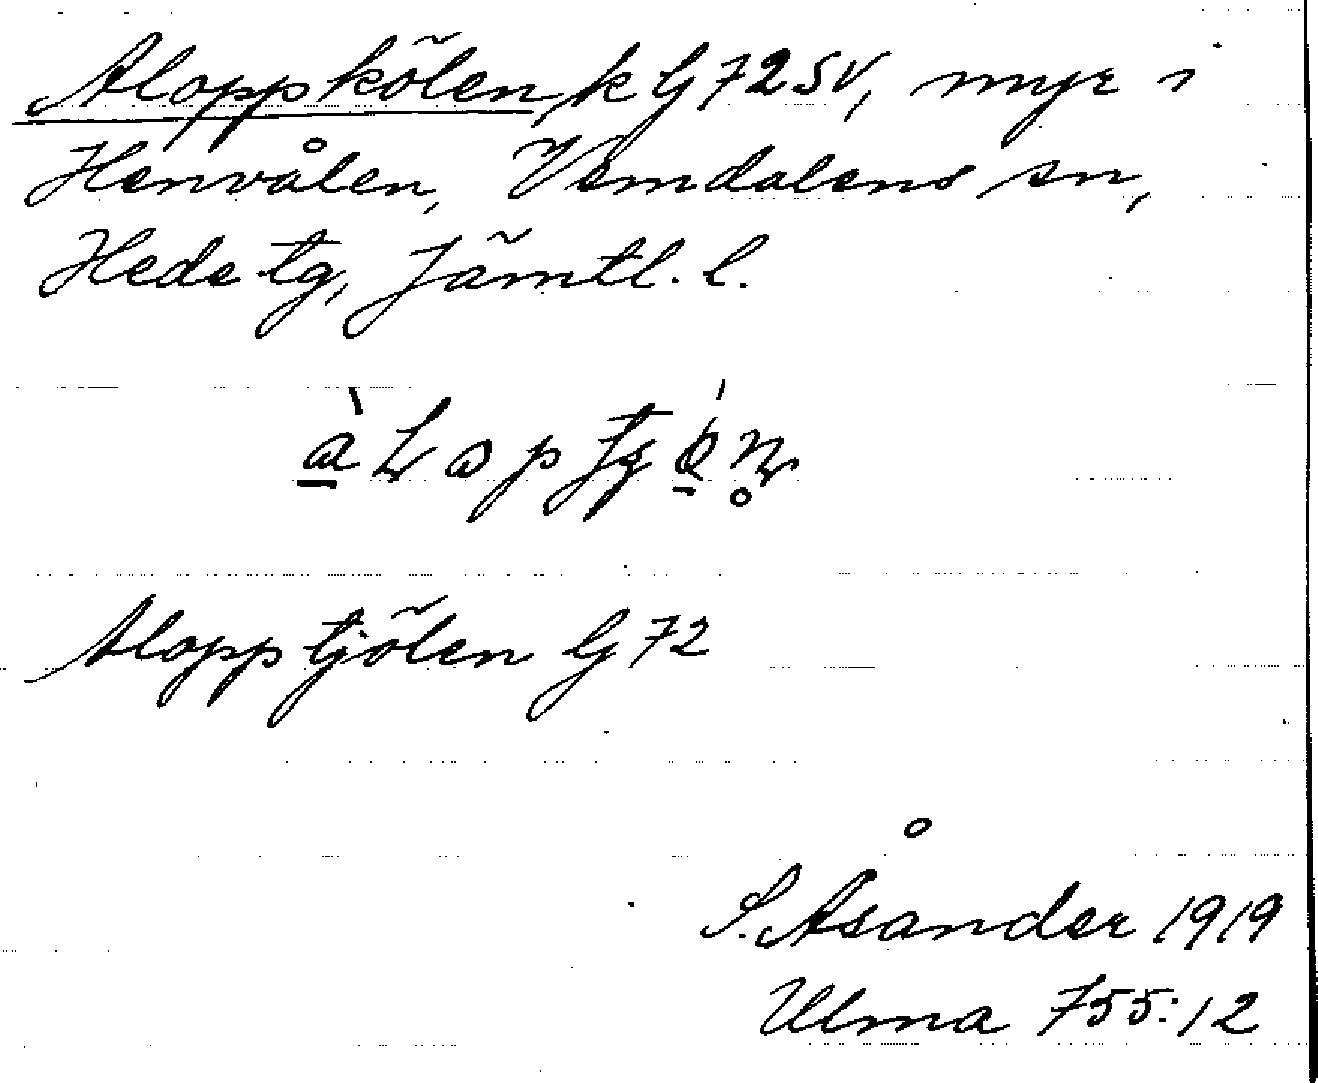 Aloppkölen, k G 72 SV, myr i
Henvålen, Vemdalens sn,
Hede tg, Jämtl. l.
Alopptjölen G 72
S. Åsander 1919
Ulma 755:12